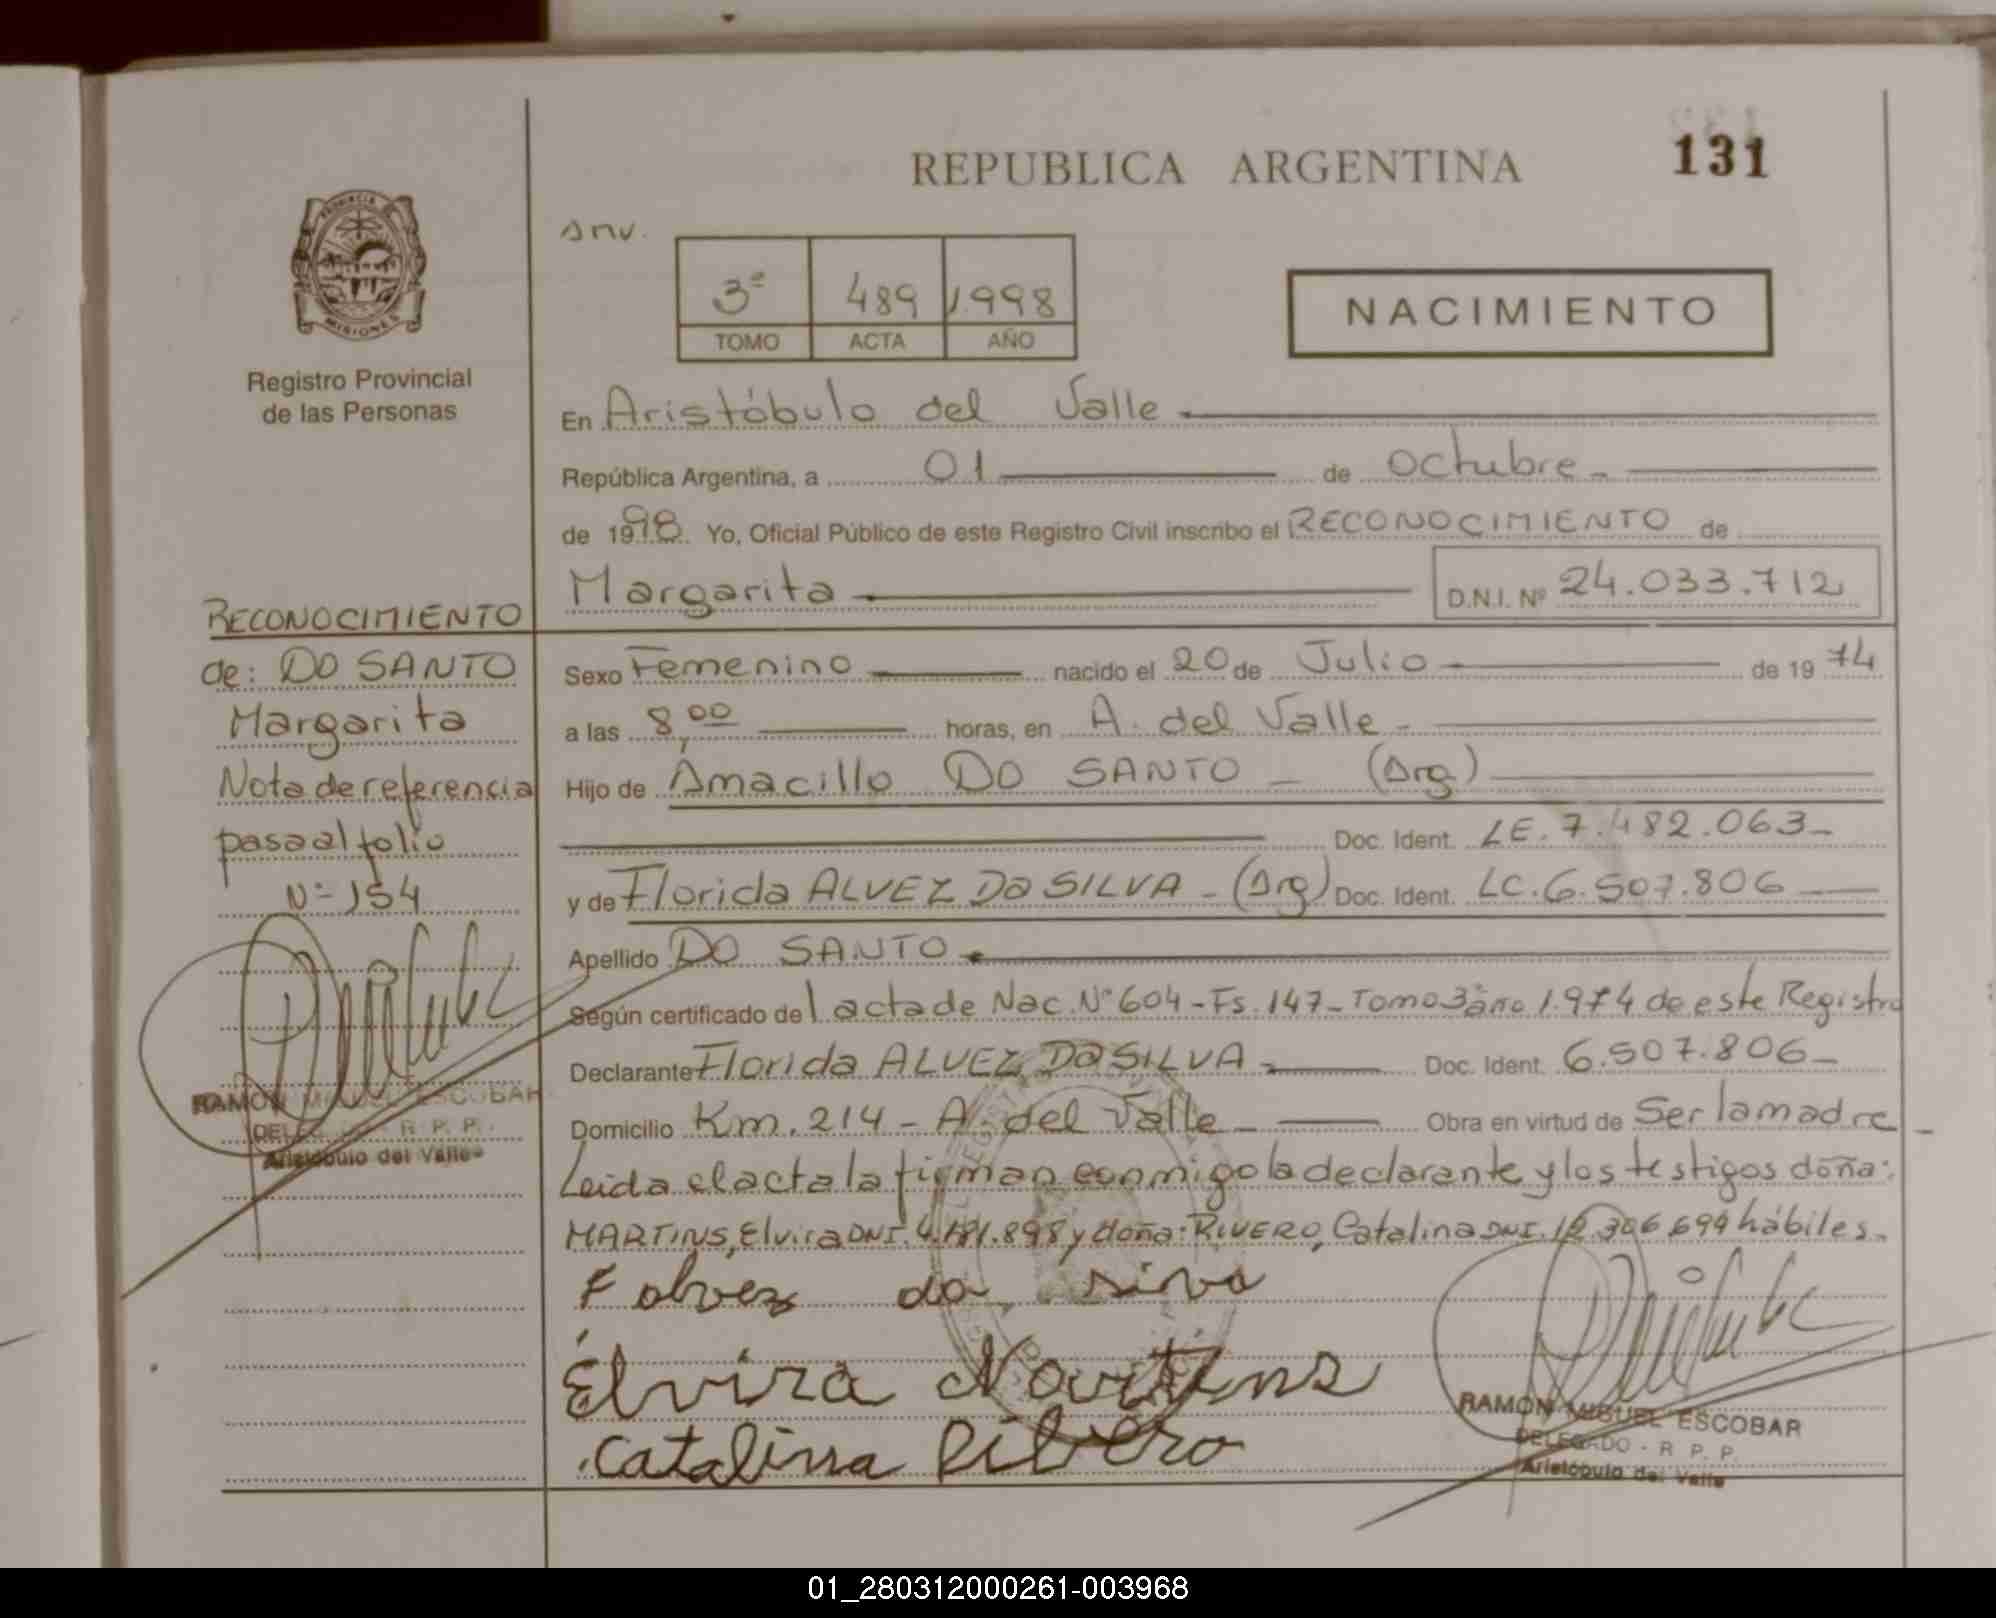 REPUBLICA ARGENTINA
131
PROVINCIA DE
MISIONES
Registro Provincial
de las Personas
Anv.
3º 489 1.998
TOMO ACTA AÑO
NACIMIENTO
En Aristóbulo del Valle
República Argentina, a 01 de octubre -
de 1998 Yo, Oficial Público de este Registro Civil inscribo el RECONOCIMIENTO de
Margarita D.N.I. Nº 24.033.712
RECONOCIMIENTO
de: DO SANTO
Margarita
Nota de referencia
pasa al folio
Nº 154
RAMON MIGUEL ESCOBAR
DELEGADO R. P. P.
Aristóbulo del Valle
Sexo Femenino nacido el 20 de Julio de 19 74
a las 8,00 horas, en A. del Valle -
Hijo de Amacillo DO SANTO - (Arg)
Doc. Ident. LE. 7.482.063-
y de Florida ALVEZ DA SILVA - (Arg) Doc. Ident. LC. 6.507.806
Apellido DO SANTO
Según certificado del acta de Nac. Nº 604 - Fs. 147 - Tomo 3º año 1.974 de este Registro
Declarante Florida ALVEZ DA SILVA - Doc. Ident. 6.507.806-
Domicilio Km. 214 - A. del Valle - Obra en virtud de Ser la madre -
Leida el acta la firman conmigo la declarante y los testigos doña:
MARTINS, Elvira DNI. 4.181.898 y doña: RIVERO, Catalina DNI. 12.306.699 hábiles.
F alvez da siva
Elvira Martins
Catalina Rivero
RAMON MIGUEL ESCOBAR
DELEGADO - R. P. P.
Aristóbulo del Valle
01_280312000261-003968